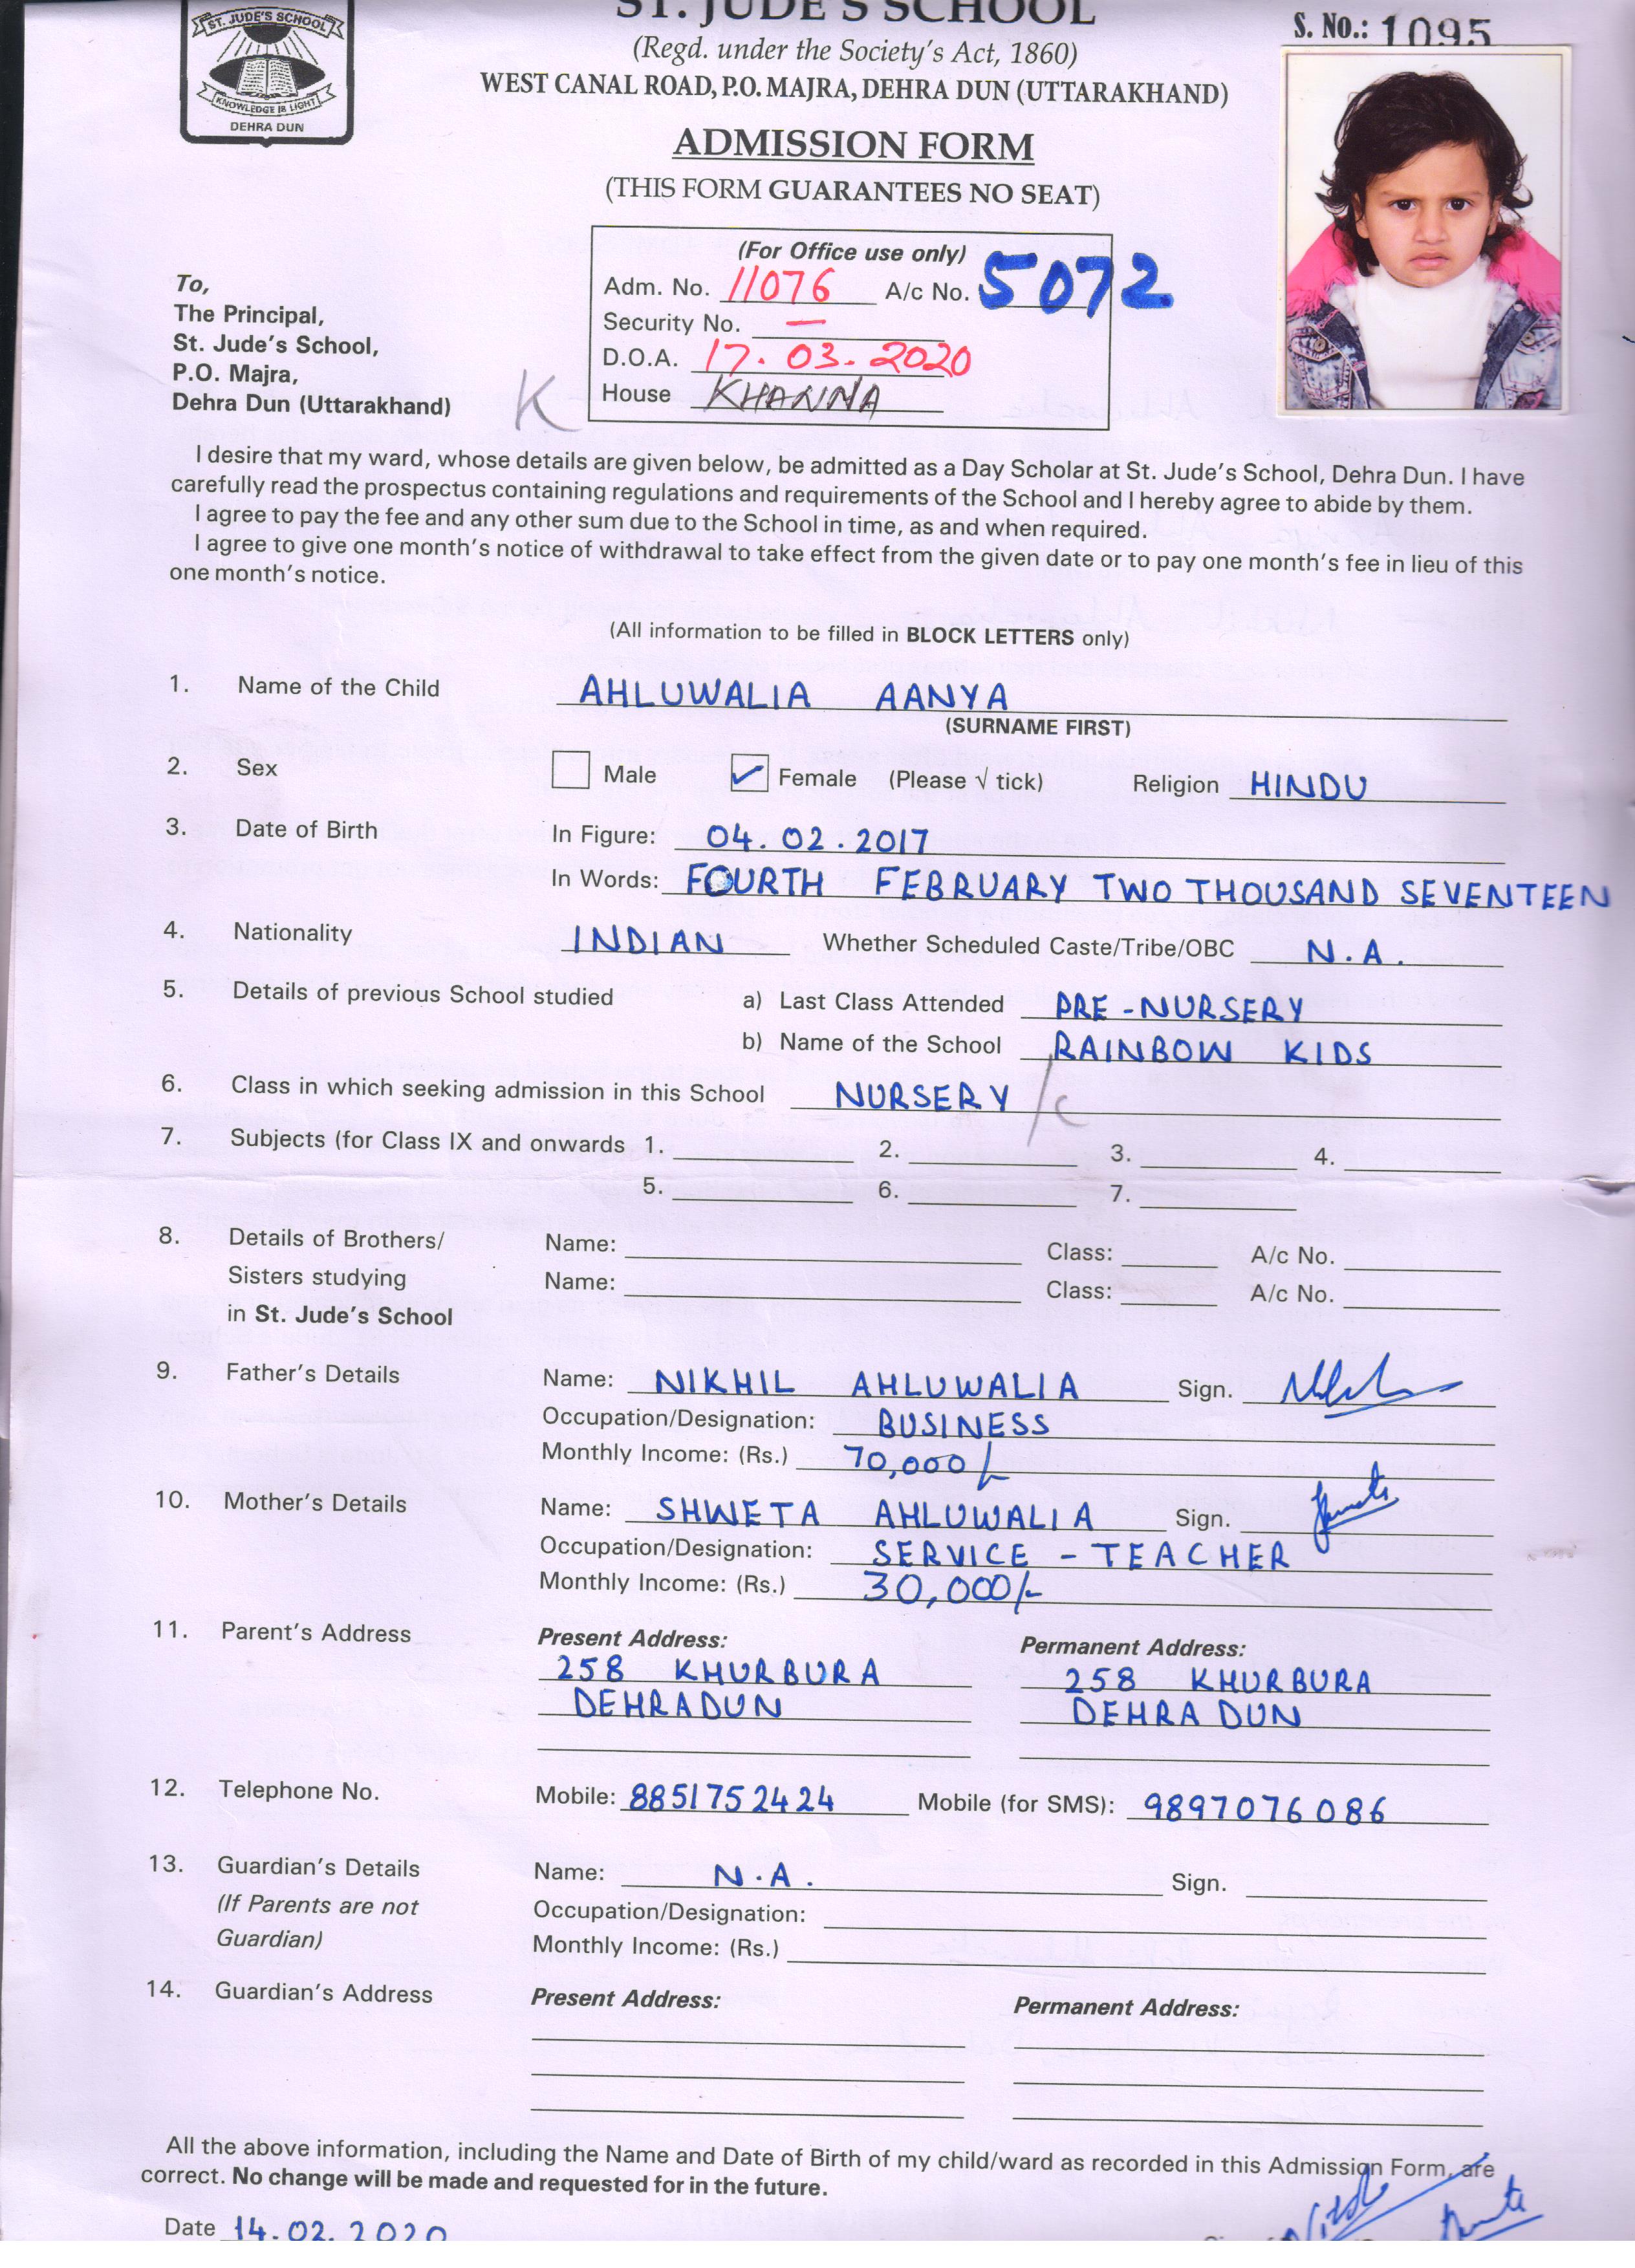 ST. JUDE'S SCHOOL
KNOWLEDGE IS LIGHT
DEHRA DUN
ST. JUDE'S SCHOOL
(Regd. under the Society's Act, 1860)
WEST CANAL ROAD, P.O. MAJRA, DEHRA DUN (UTTARAKHAND)
S. No.: 1095
ADMISSION FORM
(THIS FORM GUARANTEES NO SEAT)
(For Office use only)
Adm. No. 11076 A/c No. 5072
Security No. —
D.O.A. 17.03.2020
House KHANNA
To,
The Principal,
St. Jude's School,
P.O. Majra,
Dehra Dun (Uttarakhand)
K
I desire that my ward, whose details are given below, be admitted as a Day Scholar at St. Jude's School, Dehra Dun. I have
carefully read the prospectus containing regulations and requirements of the School and I hereby agree to abide by them.
I agree to pay the fee and any other sum due to the School in time, as and when required.
I agree to give one month's notice of withdrawal to take effect from the given date or to pay one month's fee in lieu of this
one month's notice.
(All information to be filled in BLOCK LETTERS only)
1. Name of the Child AHLUWALIA AANYA
(SURNAME FIRST)
2. Sex Male ✓ Female (Please √ tick) Religion HINDU
3. Date of Birth In Figure: 04.02.2017
In Words: FOURTH FEBRUARY TWO THOUSAND SEVENTEEN
4. Nationality INDIAN Whether Scheduled Caste/Tribe/OBC N.A.
5. Details of previous School studied a) Last Class Attended PRE-NURSERY
b) Name of the School RAINBOW KIDS
6. Class in which seeking admission in this School NURSERY /C
7. Subjects (for Class IX and onwards 1. 2. 3. 4.
5. 6. 7.
8. Details of Brothers/ Name: Class: A/c No.
Sisters studying Name: Class: A/c No.
in St. Jude's School
9. Father's Details Name: NIKHIL AHLUWALIA Sign.
Occupation/Designation: BUSINESS
Monthly Income: (Rs.) 70,000/-
10. Mother's Details Name: SHWETA AHLUWALIA Sign.
Occupation/Designation: SERVICE - TEACHER
Monthly Income: (Rs.) 30,000/-
11. Parent's Address Present Address: Permanent Address:
258 KHURBURA 258 KHURBURA
DEHRADUN DEHRA DUN
12. Telephone No. Mobile: 8851752424 Mobile (for SMS): 9897076086
13. Guardian's Details Name: N.A. Sign.
(If Parents are not Occupation/Designation:
Guardian) Monthly Income: (Rs.)
14. Guardian's Address Present Address: Permanent Address:
All the above information, including the Name and Date of Birth of my child/ward as recorded in this Admission Form, are
correct. No change will be made and requested for in the future.
Date 14.02.2020